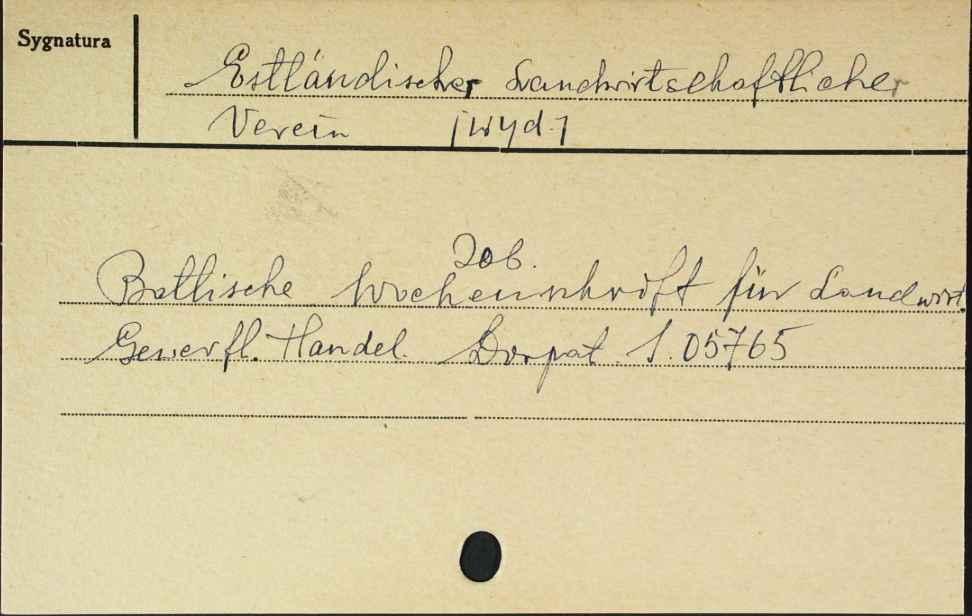 Sygnatura
Estländischer Landwirtschaftlicher
Verein [wyd.]
Zob.
Baltische Wochenschrift für Landwirt.
Gewerfl. Handel. Dorpat. S. 05765